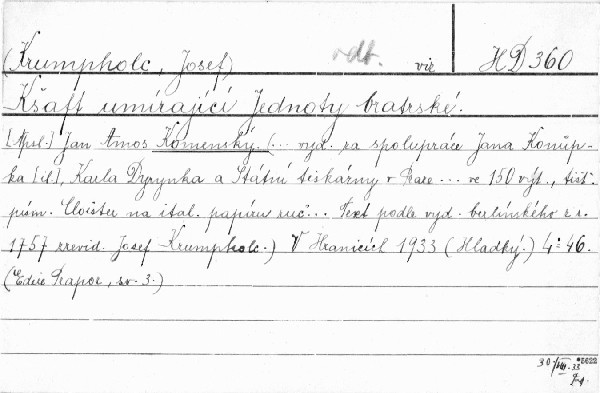 (Krumpholc, Josef) odb. viz HD 360
Kšaft umírající Jednoty bratrské.
[Aps.] Jan Amos Komenský. (... vyd. za spolupráce Jana Konůp-
ka [il], Karla Dyrynka a Státní tiskárny v Praze ... ve 150 výt., tišt.
písm. Cloister na ital. papíru ruč... Text podle vyd. berlínského z r.
1757 zrevid. Josef Krumpholc.) V Hranicích 1933 (Hladký.) 4° 46.
(Edice Prapor, sv. 3.)
30/VIII. 33 *5622